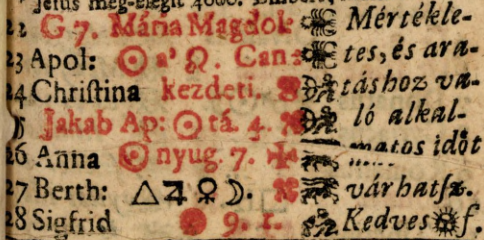 Jesus meg-elegít 4000. Embert,
22 G 7. Mária Magdol: Mértékle-
23 Apol: ☉ a' ♌. Can: tes, és ara-
24 Chriſtina kezdeti. táshoz va-
Jakab Ap: ☉ tá. 4. ló alkal-
26 Anna ☉ nyug. 7. matos időt
27 Berth: △ ♃ ♀ ☽. várhatſz.
28 Sigfrid 9. 1. Kedves f.